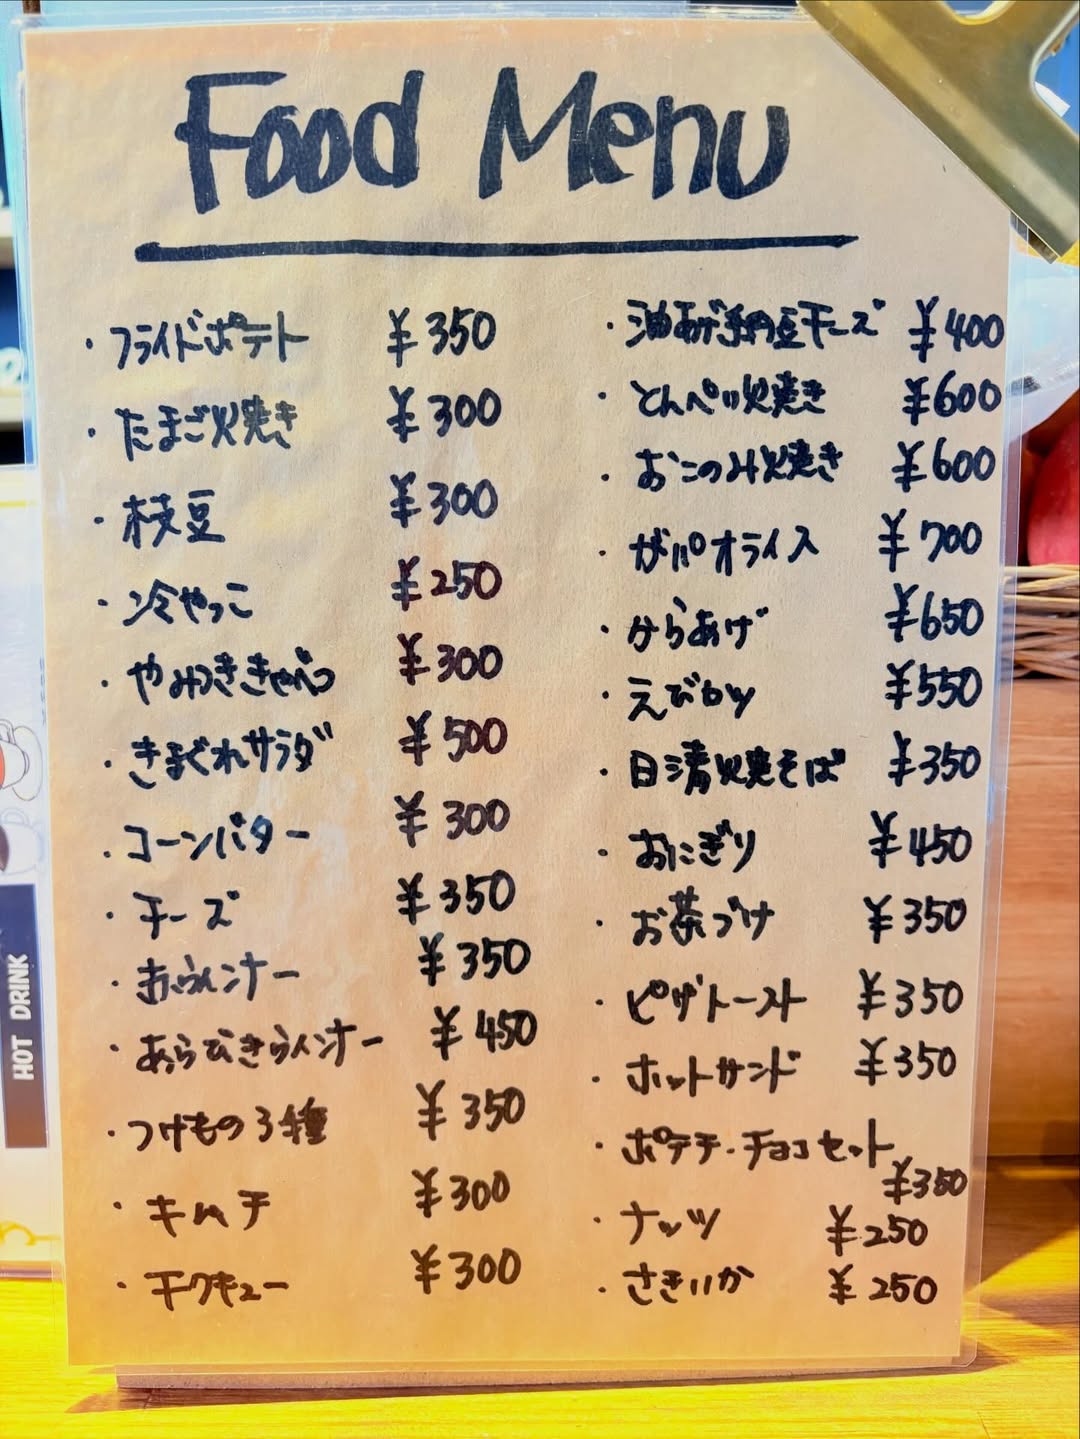 Food Menu
・フライドポテト ¥350
・たまご焼き ¥300
・枝豆 ¥300
・冷やっこ ¥250
・やみつききゃべつ ¥300
・きまぐれサラダ ¥500
・コーンバター ¥300
・チーズ ¥350
・赤ウインナー ¥350
・あらびきウインナー ¥450
・つけもの3種 ¥350
・キムチ ¥300
・チクキュー ¥300
・油あげ納豆チーズ ¥400
・とんぺい焼き ¥600
・おこのみ焼き ¥600
・ガパオライス ¥700
・からあげ ¥650
・えびカツ ¥550
・日清焼そば ¥350
・おにぎり ¥450
・お茶づけ ¥350
・ピザトースト ¥350
・ホットサンド ¥350
・ポテチ・チョコセット
¥350
・ナッツ ¥250
・さきいか ¥250
HOT DRINK